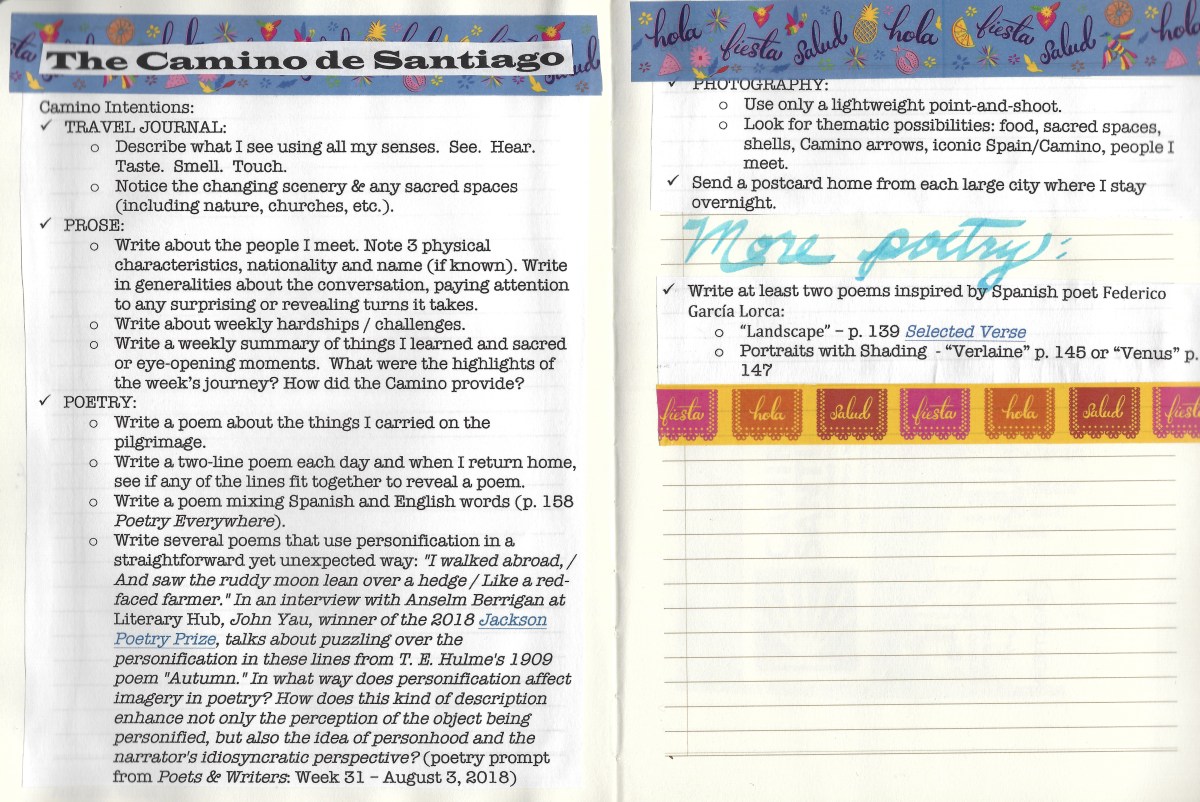 The Camino de Santiago
Camino Intentions:
✓ TRAVEL JOURNAL:
o Describe what I see using all my senses. See. Hear.
Taste. Smell. Touch.
o Notice the changing scenery & any sacred spaces
(including nature, churches, etc.).
✓ PROSE:
o Write about the people I meet. Note 3 physical
characteristics, nationality and name (if known). Write
in generalities about the conversation, paying attention
to any surprising or revealing turns it takes.
o Write about weekly hardships / challenges.
o Write a weekly summary of things I learned and sacred
or eye-opening moments. What were the highlights of
the week's journey? How did the Camino provide?
✓ POETRY:
o Write a poem about the things I carried on the
pilgrimage.
o Write a two-line poem each day and when I return home,
see if any of the lines fit together to reveal a poem.
o Write a poem mixing Spanish and English words (p. 158
Poetry Everywhere).
o Write several poems that use personification in a
straightforward yet unexpected way: "I walked abroad, /
And saw the ruddy moon lean over a hedge / Like a red-
faced farmer." In an interview with Anselm Berrigan at
Literary Hub, John Yau, winner of the 2018 Jackson
Poetry Prize, talks about puzzling over the
personification in these lines from T. E. Hulme's 1909
poem "Autumn." In what way does personification affect
imagery in poetry? How does this kind of description
enhance not only the perception of the object being
personified, but also the idea of personhood and the
narrator's idiosyncratic perspective? (poetry prompt
from Poets & Writers: Week 31 – August 3, 2018)
hola fiesta salud hola fiesta salud
✓ PHOTOGRAPHY:
o Use only a lightweight point-and-shoot.
o Look for thematic possibilities: food, sacred spaces,
shells, Camino arrows, iconic Spain/Camino, people I
meet.
✓ Send a postcard home from each large city where I stay
overnight.
More poetry:
✓ Write at least two poems inspired by Spanish poet Federico
García Lorca:
o "Landscape" – p. 139 Selected Verse
o Portraits with Shading - "Verlaine" p. 145 or "Venus" p.
147
fiesta hola salud fiesta hola salud fiest